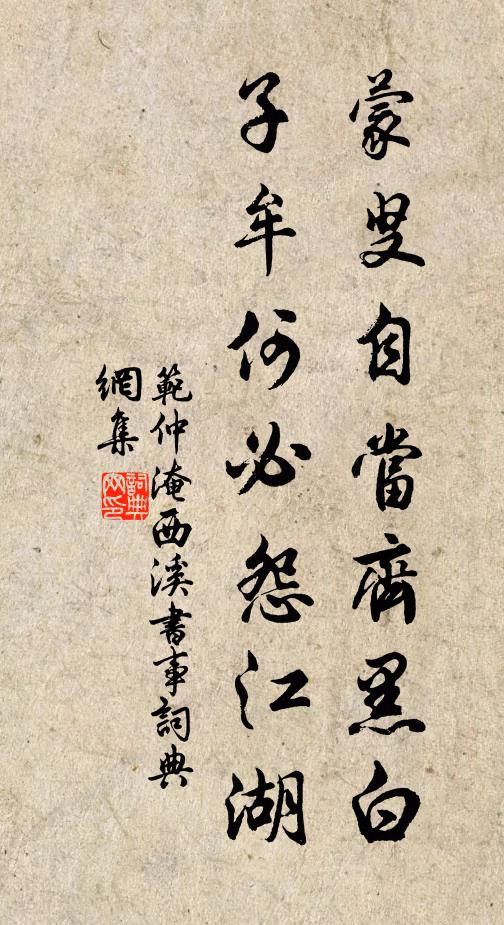 蒙叟自當齊黑白
子牟何必怨江湖
範仲淹西溪書事詞典
網集
詞典
網印